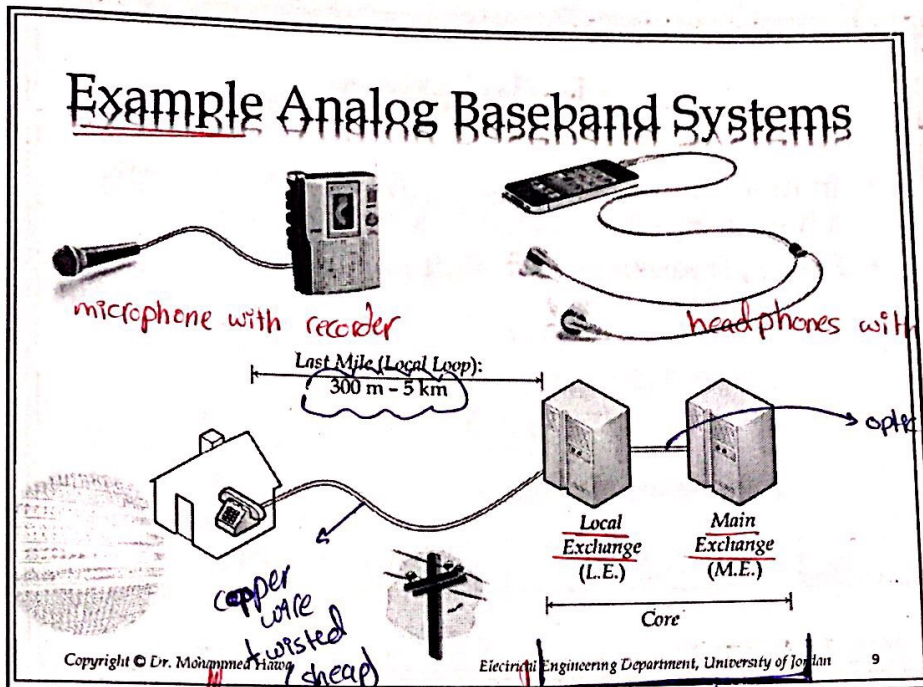 Example Analog Baseband Systems
microphone with recorder
headphones with
Last Mile (Local Loop):
300 m – 5 km
optic
Local
Exchange
(L.E.)
Main
Exchange
(M.E.)
copper
wire
twisted
(cheap)
Core
Copyright © Dr. Mohammed Hawa
Electrical Engineering Department, University of Jordan
9